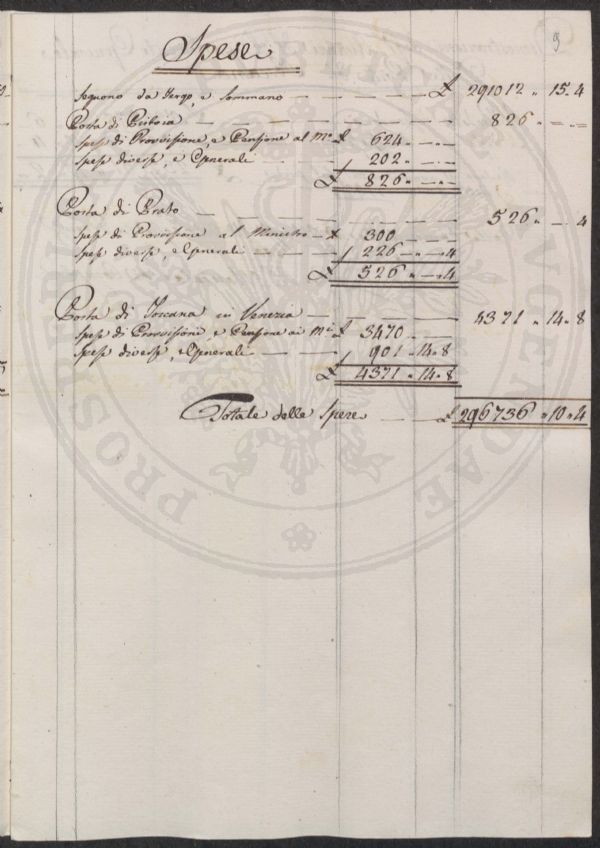 9
Spese
Seguono da tergo, e sommano — — £ 291012 „ 15 „ 4
Posta di Bibbia — — — — 826 „ — „ —
Spese di Provvisione, e Pensione al M.º £ 624 „ — „ —
Spese diverse, e Generali — — 202 „ — „ —
£ 826 „ — „ —
Posta di Prato — — — — 526 „ — „ 4
Spese di Provvisione al Ministro £ 300 — —
Spese diverse, e Generali — — 226 „ — „ 4
£ 526 „ — „ 4
Posta di Toscana in Venezia — — — 4371 „ 14 „ 8
Spese di Provvisioni, e Pensione ai M.i £ 3470 — —
Spese diverse, e Generali — — 901 „ 14 „ 8
£ 4371 „ 14 „ 8
Totale delle Spese — — £ 296736 „ 10 „ 4
PROSPI